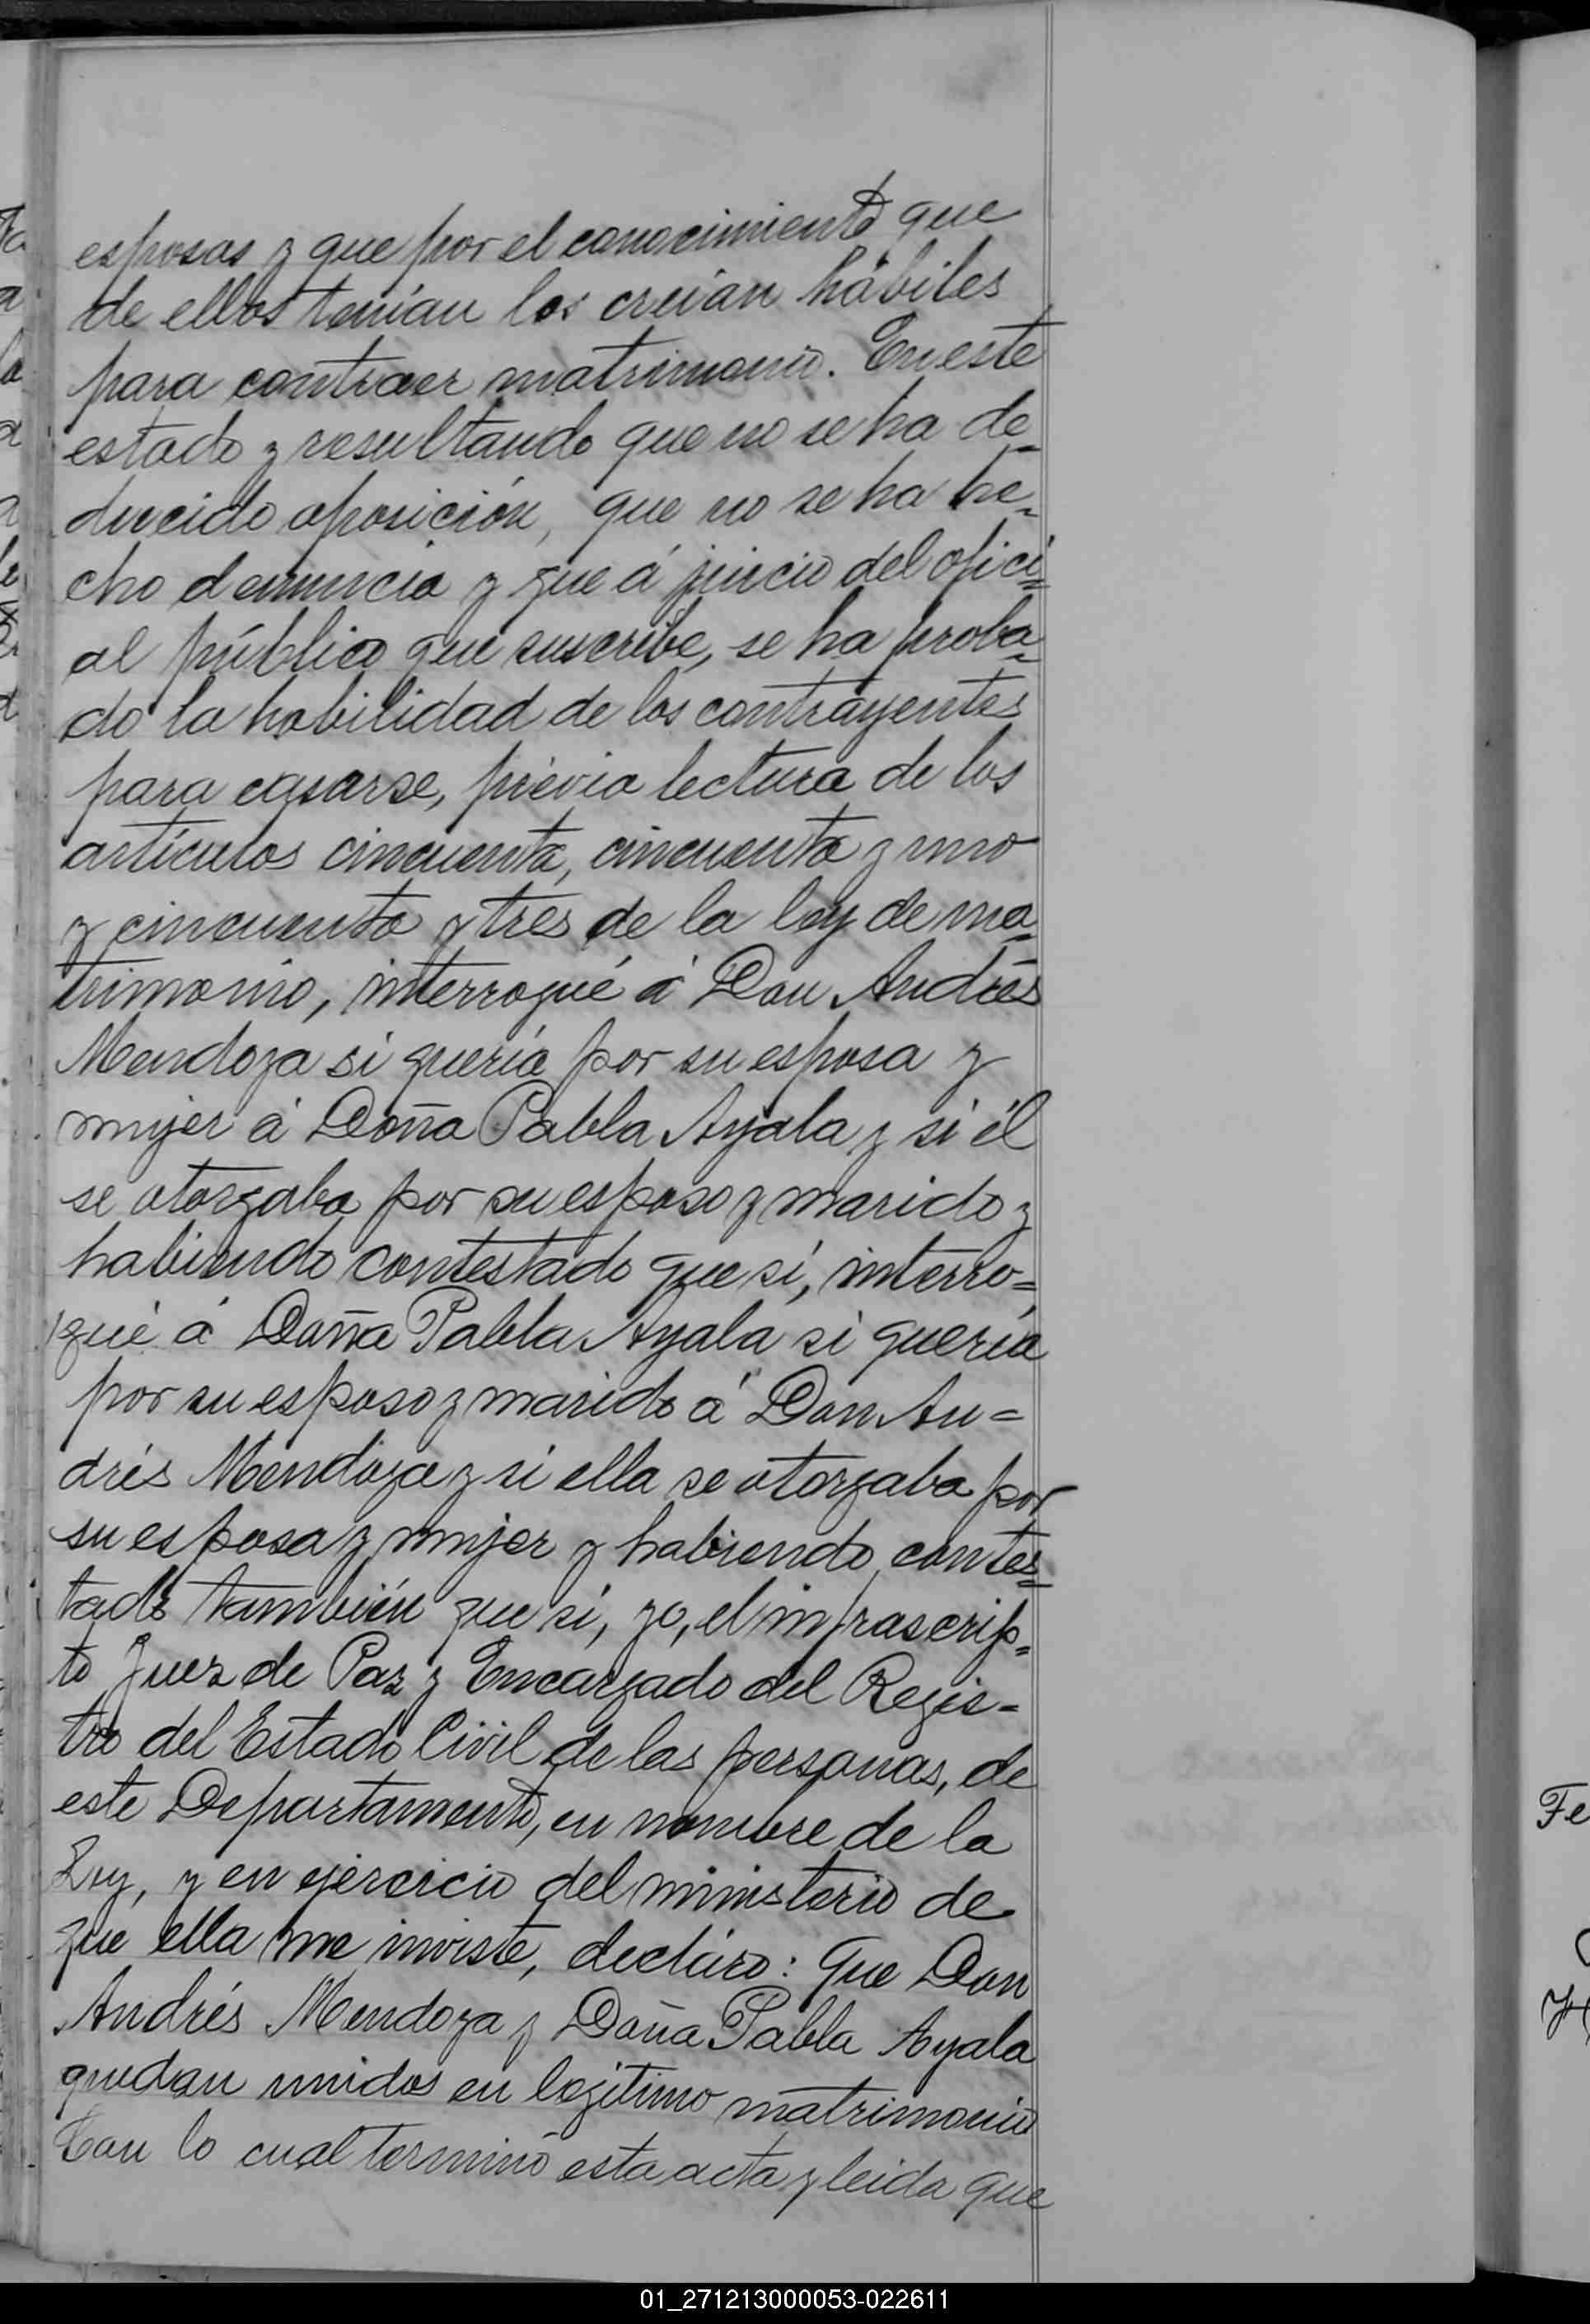 esposas y que por el conocimiento que
de ellos tenían los creían hábiles
para contraer matrimonio. En este
estado y resultando que no se ha de-
ducido oposición, que no se ha he-
cho denuncia y que á juicio del ofici-
al público que suscribe, se ha proba-
do la habilidad de los contrayentes
para casarse, prévia lectura de los
artículos cincuenta, cincuenta y uno
y cincuenta y tres de la ley de ma-
trimonio, interrogué á Don Andrés
Mendoza si quería por su esposa y
mujer á Doña Pabla Ayala y si él
se otorgaba por su esposo y marido y
habiendo contestado que sí, interro=
gué á Doña Pabla Ayala si quería
por su esposo y marido á Don An=
drés Mendoza y si ella se otorgaba por
su esposa y mujer y habiendo contes=
tado también que sí, yo, el infrascrip=
to Juez de Paz y Encargado del Regis-
tro del Estado Civil de las personas, de
este Departamento, en nombre de la
Ley, y en ejercicio del ministerio de
que ella me inviste, declaro: Que Don
Andrés Mendoza y Doña Pabla Ayala
quedan unidos en legítimo matrimonio
Con lo cual terminó esta acta y leida que
Fe
01_271213000053-022611